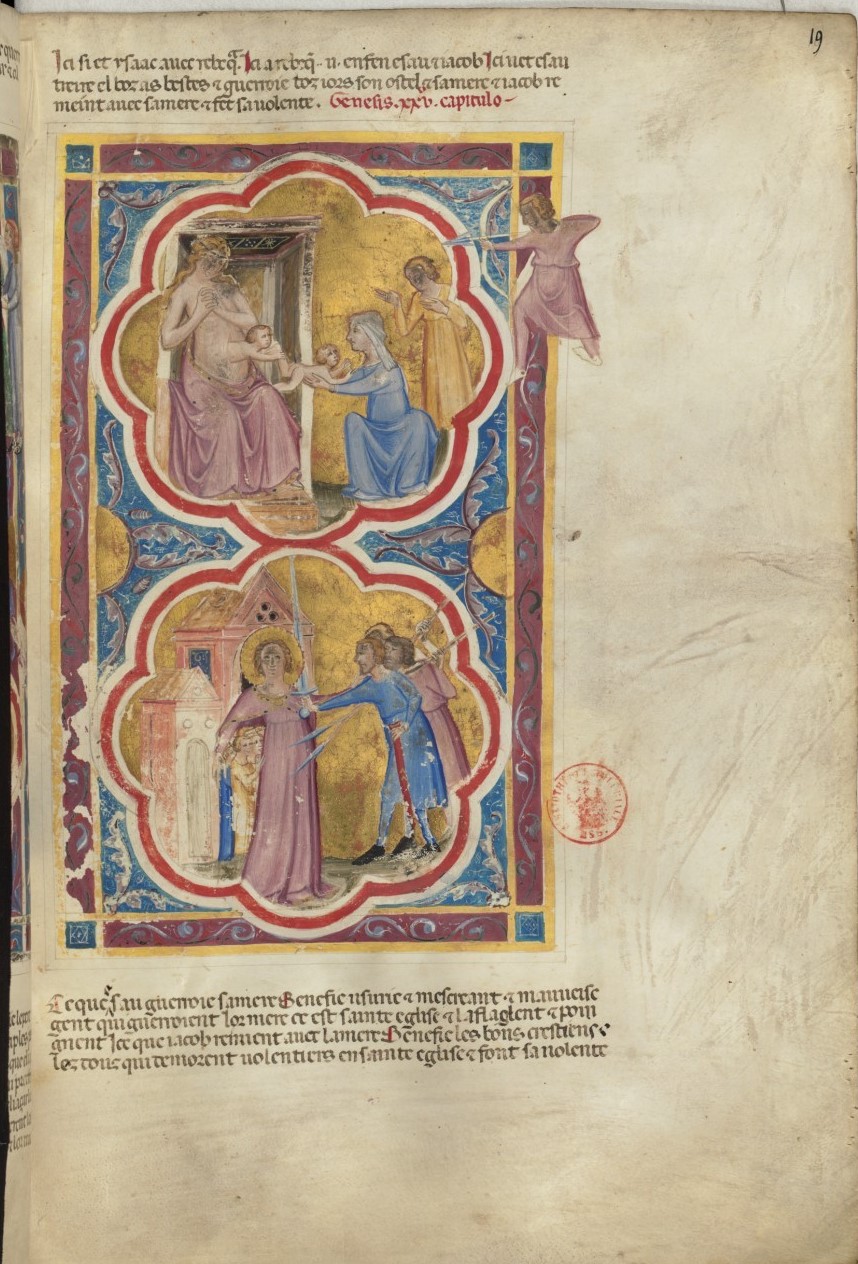 19
Ici si est ysaac auec rebeq̃. Ici a rebeq̃ .ii. enfen esau ⁊ iacob Ici uet esau
trere el boz as bestes ⁊ guerroie toz iors son ostel ⁊ sa mere ⁊ iacob re
meint auec sa mere ⁊ fet sa uolente. Genesis .xxv. capitulo
Ce que sau guerroie sa mere Senefie usurie ⁊ mescreant ⁊ mauueise
gent qui guerroient lor mere ce est sainte eglise ⁊ la flaglent ⁊ poin
gnent Ice que iacob remient auec la mere Senefie les bons crestiens ⁊
les douz qui demorent uolentiers en sainte eglise ⁊ font sa uolente